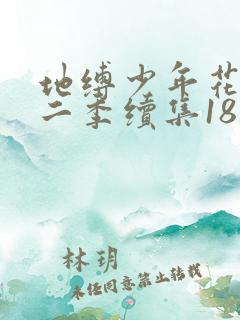 地缚少年花
二季续集18
林玥
未经同意禁止转载